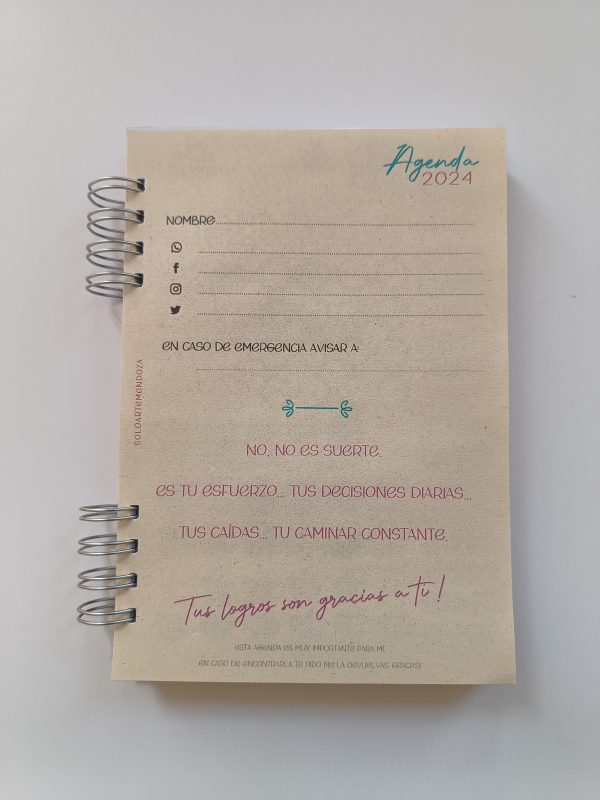 Agenda
2024
NOMBRE
EN CASO DE EMERGENCIA AVISAR A:
SOLOARTEMENDOZA
NO, NO ES SUERTE,
ES TU ESFUERZO... TUS DECISIONES DIARIAS...
TUS CAÍDAS... TU CAMINAR CONSTANTE.
Tus logros son gracias a ti!
ESTA AGENDA ES MUY IMPORTANTE PARA MÍ
EN CASO DE ENCONTRARLA TE PIDO ME LA DEVUELVAS. GRACIAS!